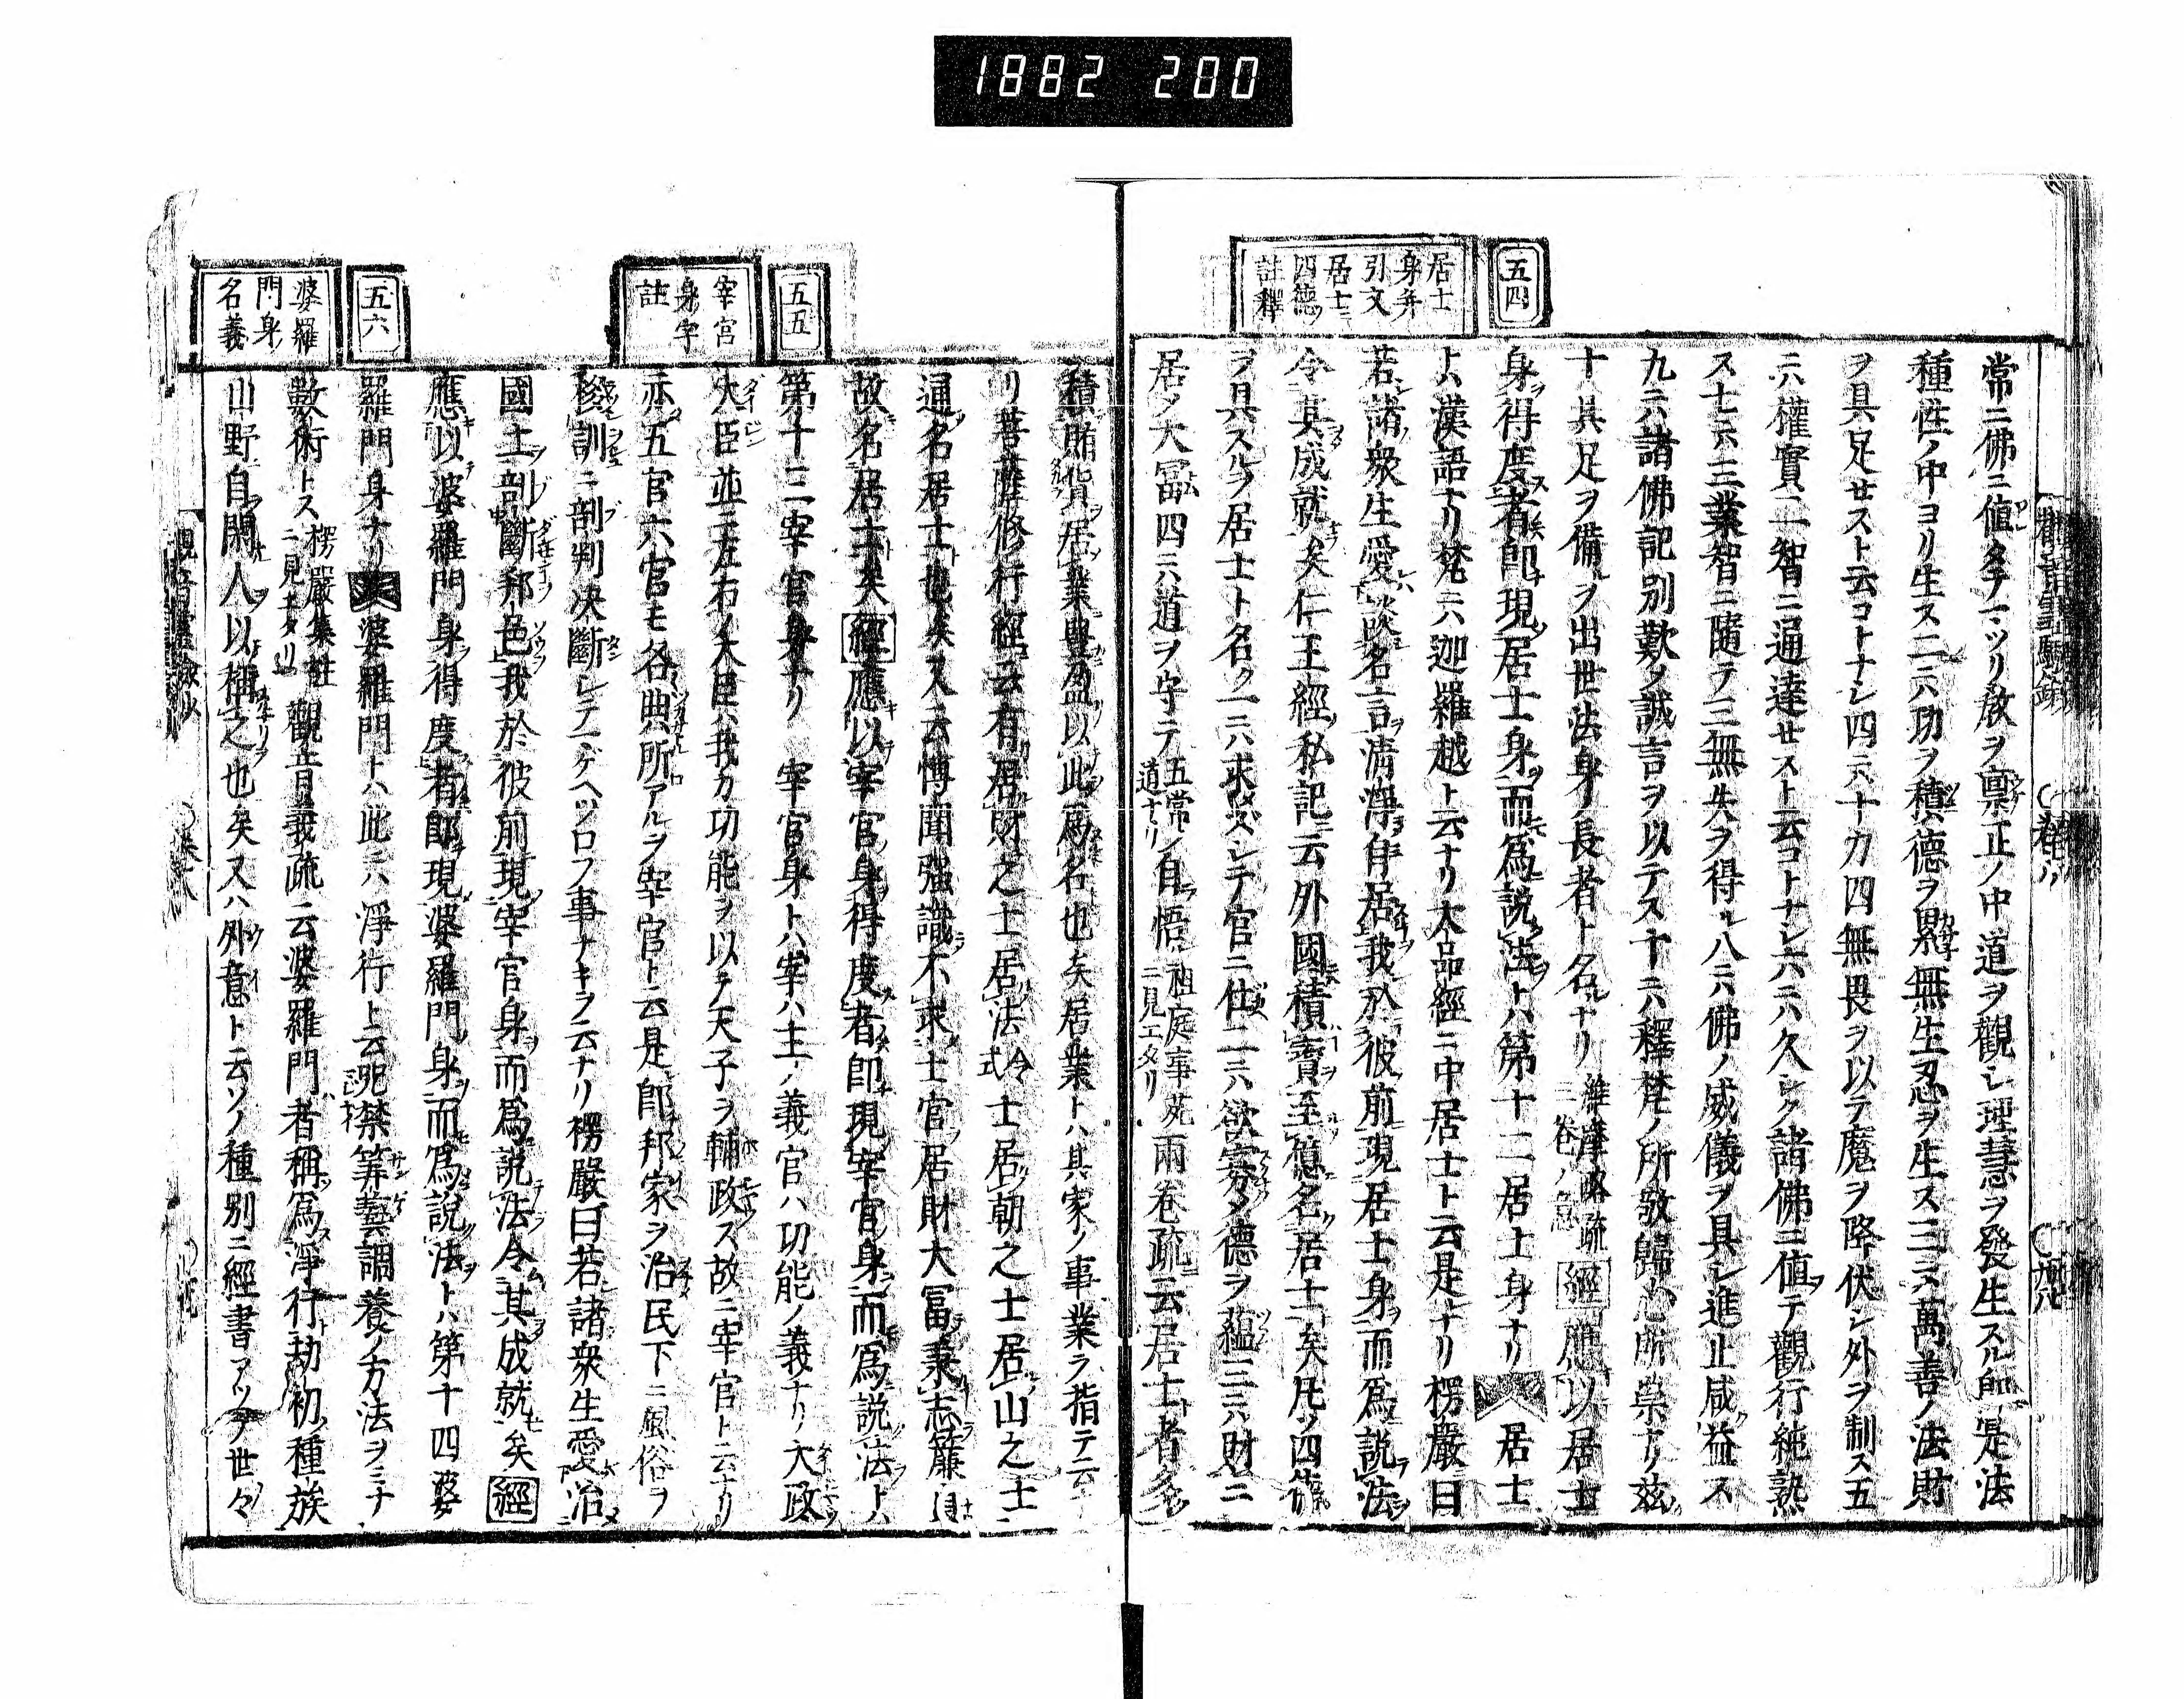 1882 200
五四
居士
身并
引文
居士ニ
四德ノ
註釋
常ニ佛ニ値タテマツリ教ヲ稟正ノ中道ヲ觀シ理慧ヲ發生スル師 是法
種性ノ中ヨリ生ス二ニハ功ヲ積德ヲ累無生忍ヲ生ス三ニハ萬善ノ法財
ヲ具足セスト云コトナシ四ニハ十力四無畏ヲ以テ魔ヲ降伏シ外ヲ制ス五
ニハ權實二智ニ通達セスト云コトナシ六ニハ久シク諸佛ニ値テ觀行純熟
ス七ニハ三業智ニ隨テ三無失ヲ得ル八ニハ佛ノ威儀ヲ具シ進止咸益ス
九ニハ諸佛記別歎ノ誠言ヲ以テス十ニハ釋梵ノ所敬歸 所崇ナリ茲
十具足ヲ備ルヲ出世法身ノ長者ト名ルナリ 維摩略疏二卷ノ意 經 應以居士
身得度者即現居士身而爲説法トハ第十二居士身ナリ 居士
トハ漢語ナリ梵ニハ迦羅越ト云ナリ大品經ニ中居士ト云是ナリ楞嚴曰
若諸衆生愛談名言清淨自居我於彼前現居士身而爲説法
令其成就矣仁王經私記云外國積寳至億名居士矣凡ソ四德
ヲ具スルヲ居士ト名ク一ニハ求メスシテ官ニ仕二ニハ欲寡ク德ヲ蘊三ニハ財ニ
居ノ大富四ニハ道ヲ守テ五常ノ道ナリ 自悟 祖庭事苑ニ見エタリ 兩卷疏云居士者多
積賄貨居業豊盈以此爲名也矣居業トハ其家ノ事業ヲ指テ云
リ菩薩修行經云有居財之士居法令式士居朝之士居山之士
通名居士也矣又云博聞强識不求士官居財大富秉志簾
故名居士矣 經 應以宰官身得度者即現宰官身而爲説法トハ
第十三宰官身ナリ 宰官身トハ宰ハ主ノ義官ハ功能ノ義ナリ大政
大臣並ニ左右ノ大臣ハ我カ功能ヲ以テ天子ヲ輔政ス故ニ宰官ト云ナリ
亦五官六官モ各典所アルヲ宰官ト云是即邦家ヲ治民下ニ風俗ヲ
訓ニ剖判决斷シテ一ゲヘツロフ事ナキヲ云ナリ楞嚴曰若諸衆生愛治
國土剖斷邦邑我於彼前現宰官身而爲説法令其成就矣 經
應以婆羅門身得度者即現婆羅門身而爲説法トハ第十四婆
羅門身ナリ 婆羅門トハ此ニハ淨行ト云呪禁筭藝調養ノ方法ヲミナ
數術トス 楞嚴集註ニ見エタリ 觀音義疏云婆羅門者稱爲淨行劫初種族
山野自閑人以稱之也矣又ハ外意ト云ソノ種別ニ經書アツテ世々
五五
宰官
身宰
註
五六
婆羅
門身ノ
名義